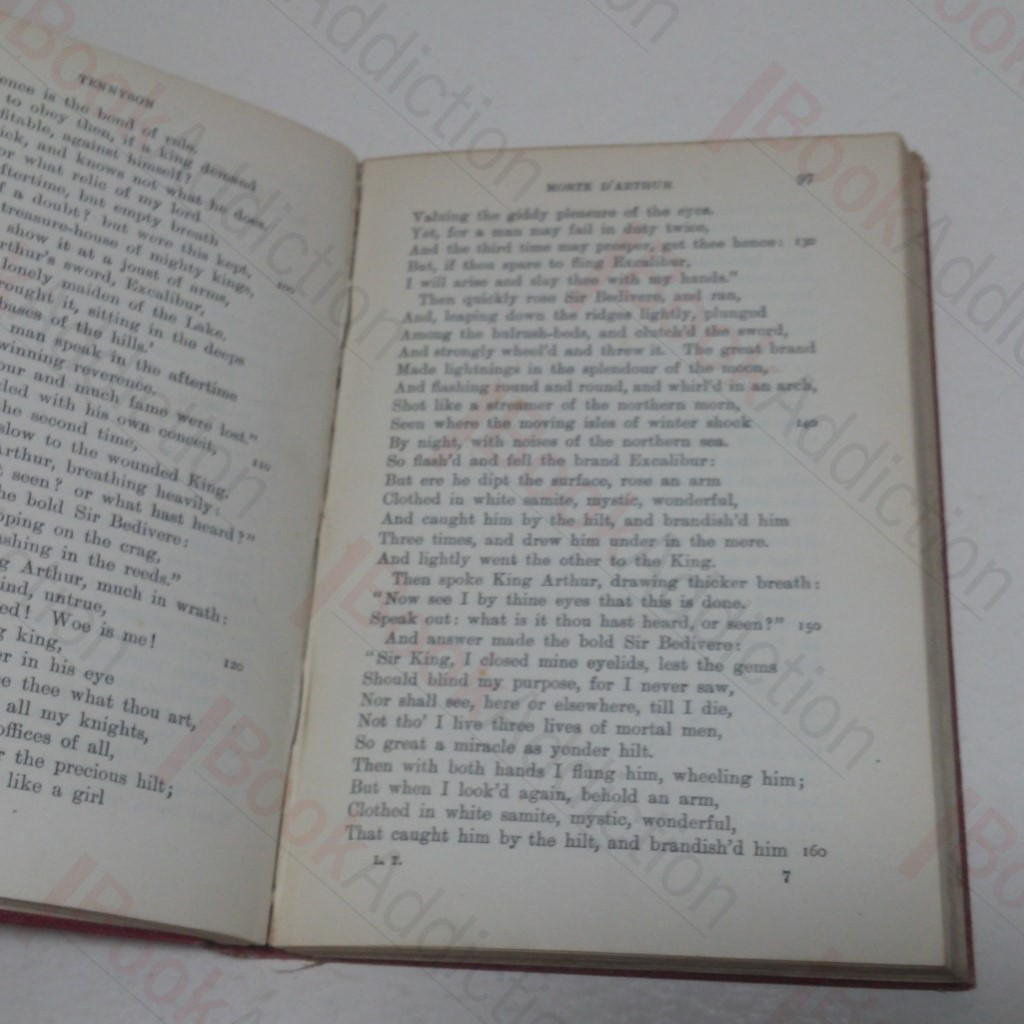 TENNYSON
ence is the bond of rule.
to obey then, if a king demand
fitable, against himself?
ick, and knows not what he does.
or what relic of my lord
ftertime, but empty breath
f a doubt? but were this kept,
treasure-house of mighty kings,
show it at a joust of arms, 100
rthur's sword, Excalibur,
lonely maiden of the Lake.
rought it, sitting in the deeps
bases of the hills.'
man speak in the aftertime
winning reverence.
our and much fame were lost."
ded with his own conceit, 110
he second time,
slow to the wounded King.
Arthur, breathing heavily:
seen? or what hast heard?"
he bold Sir Bedivere:
pping on the crag,
ashing in the reeds."
g Arthur, much in wrath:
ind, untrue,
ed! Woe is me! 120
g king,
er in his eye
e thee what thou art,
all my knights,
offices of all,
r the precious hilt;
like a girl
MORTE D'ARTHUR 97
Valuing the giddy pleasure of the eyes.
Yet, for a man may fail in duty twice,
And the third time may prosper, get thee hence: 130
But, if thou spare to fling Excalibur,
I will arise and slay thee with my hands."
Then quickly rose Sir Bedivere, and ran,
And, leaping down the ridges lightly, plunged
Among the bulrush-beds, and clutch'd the sword,
And strongly wheel'd and threw it. The great brand
Made lightnings in the splendour of the moon,
And flashing round and round, and whirl'd in an arch,
Shot like a streamer of the northern morn,
Seen where the moving isles of winter shock 140
By night, with noises of the northern sea.
So flash'd and fell the brand Excalibur:
But ere he dipt the surface, rose an arm
Clothed in white samite, mystic, wonderful,
And caught him by the hilt, and brandish'd him
Three times, and drew him under in the mere.
And lightly went the other to the King.
Then spoke King Arthur, drawing thicker breath:
"Now see I by thine eyes that this is done.
Speak out: what is it thou hast heard, or seen?" 150
And answer made the bold Sir Bedivere:
"Sir King, I closed mine eyelids, lest the gems
Should blind my purpose, for I never saw,
Nor shall see, here or elsewhere, till I die,
Not tho' I live three lives of mortal men,
So great a miracle as yonder hilt.
Then with both hands I flung him, wheeling him;
But when I look'd again, behold an arm,
Clothed in white samite, mystic, wonderful,
That caught him by the hilt, and brandish'd him 160
L. T. 7
BookAddiction